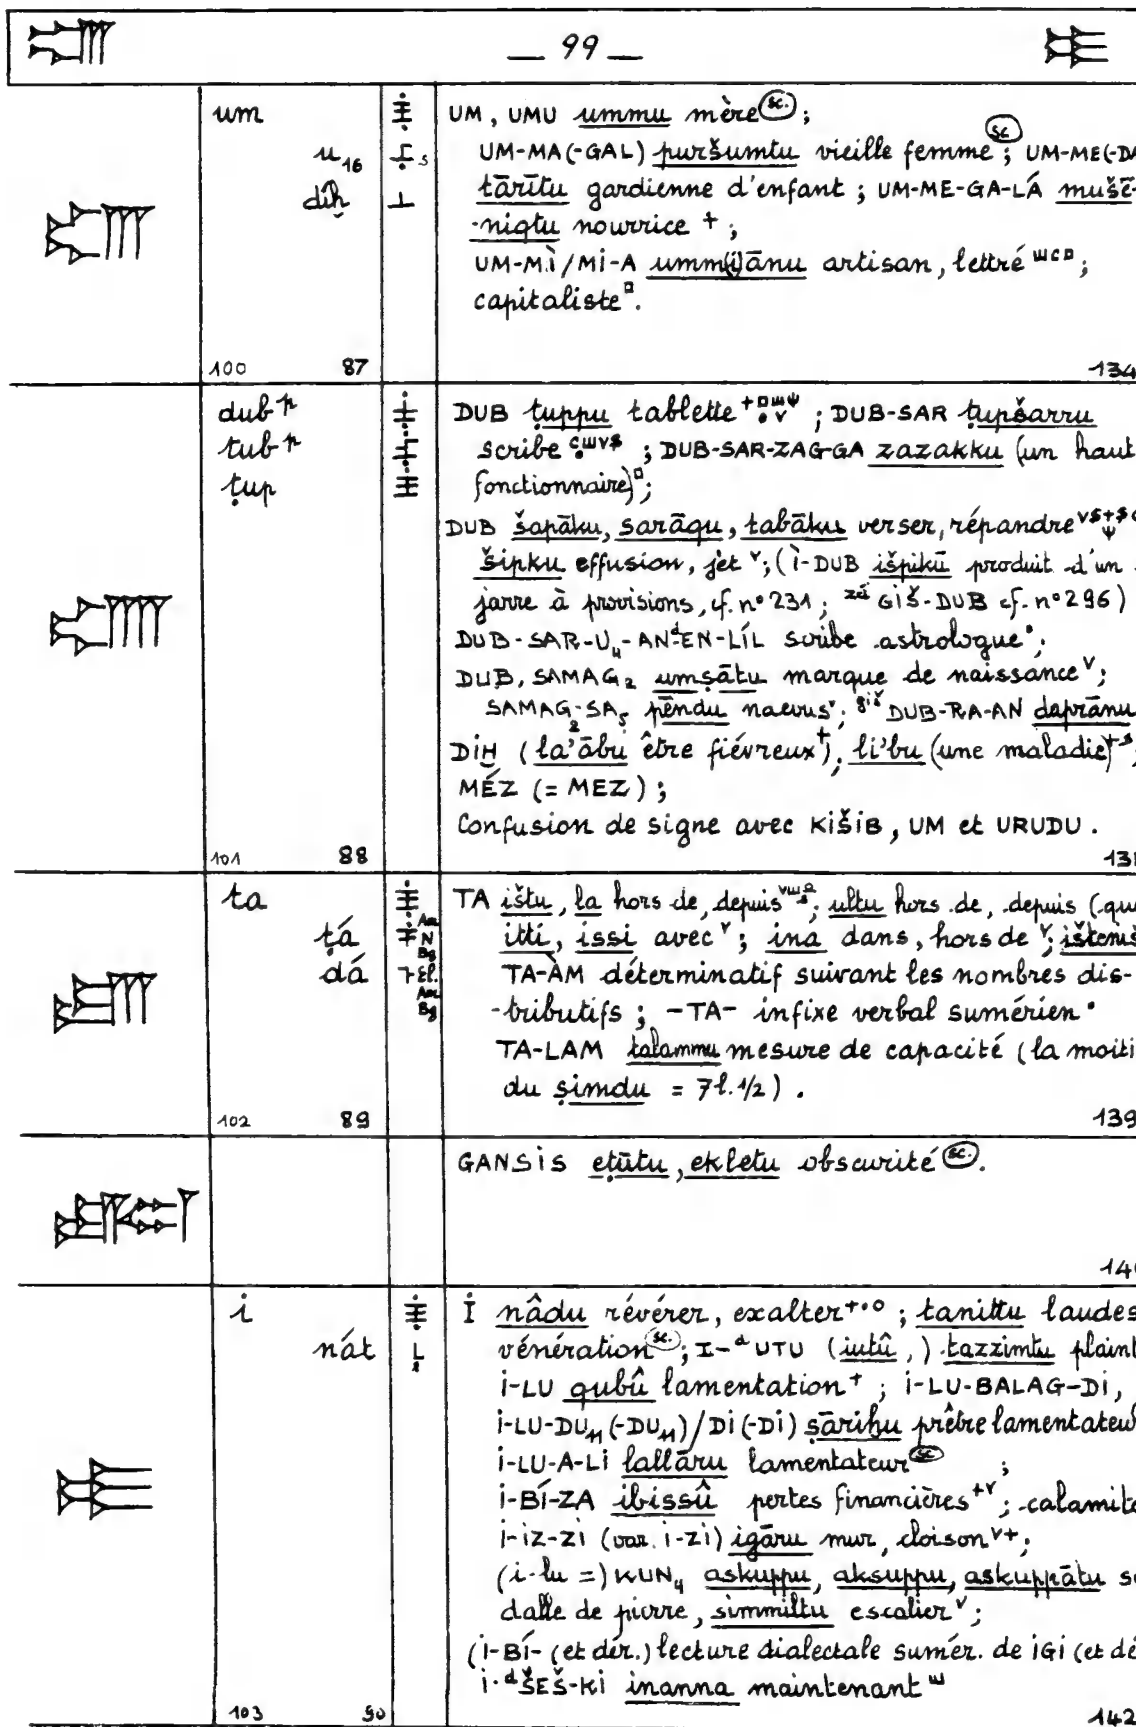 — 99 —
um
u₁₆
diḫ
UM, UMU ummu mère (sc.) ;
UM-MA(-GAL) puršumtu vieille femme (sc) ; UM-ME(-DA
tārītu gardienne d'enfant ; UM-ME-GA-LÁ mušē-
-niqtu nourrice + ;
UM-MÌ/MI-A umm(i)ānu artisan, lettré ;
capitaliste .
100 87 134
dub p
tub p
ṭup
DUB ṭuppu tablette ; DUB-SAR ṭupšarru
scribe ; DUB-SAR-ZAG-GA zazakku (un haut
fonctionnaire) ;
DUB šapāku, sarāqu, tabāku verser, répandre
šipku effusion, jet v ; (Ì-DUB išpikū produit d'un
jarre à provisions, cf. n° 231 ; GIŠ-DUB cf. n° 296)
DUB-SAR-U₄-AN ᵈEN-LÍL scribe astrologue ;
DUB, SAMAG₂ umṣātu marque de naissance v ;
SAMAG₂-SA₅ pēndu naevus v ; giš DUB-RA-AN daprānu
DIḪ (la'ābu être fiévreux +), li'bu (une maladie) ;
MÉZ (= MEZ) ;
Confusion de signe avec KIŠIB, UM et URUDU .
101 88 138
ta
ṭá
dá
TA ištu, la hors de, depuis ; ultu hors de, depuis (que
itti, issi avec v ; ina dans, hors de v ; išteniš
TA-ÀM déterminatif suivant les nombres dis-
-tributifs ; -TA- infixe verbal sumérien
TA-LAM talammu mesure de capacité (la moiti
du ṣimdu = 7l. 1/2) .
102 89 139
GANSIS eṭūtu, ekletu obscurité (sc.) .
i
nát
I nâdu révérer, exalter ; tanittu laudes
vénération (sc.) ; I-ᵈUTU (iutû ,) tazzimtu plaint
i-LU qubû lamentation + ; i-LU-BALAG-DI,
i-LU-DU₁₁(-DU₁₁)/DI(-DI) ṣāriḫu prêtre lamentateu
i-LU-A-LI lallāru lamentateur (sc) ;
i-BÍ-ZA ibissû pertes financières +v ; calamité
i-iz-zi (var. i-zi) igāru mur, cloison v+ ;
(i-lu =) KUN₄ askuppu, aksuppu, askuppātu
dalle de pierre, simmiltu escalier v ;
(i-BÍ- (et dér.) lecture dialectale sumér. de IGI (et dé
i-ᵈŠEŠ-KI inanna maintenant
103 90 142